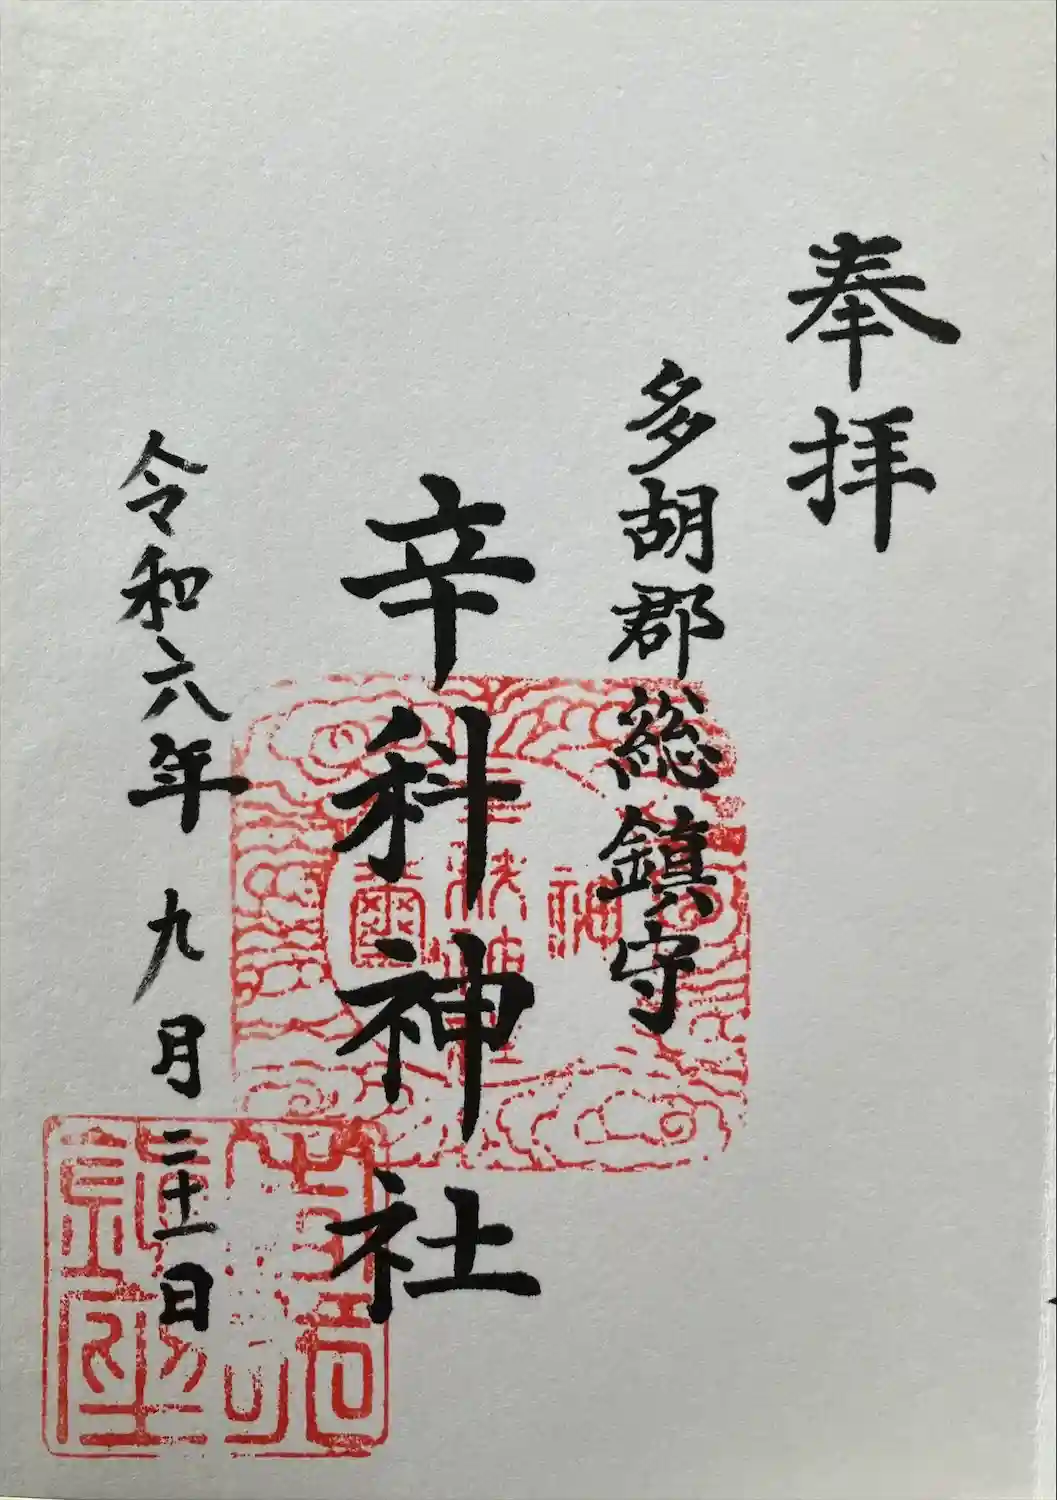 奉拝
多胡郡総鎮守
辛科神社
令和六年 九月 二十一日